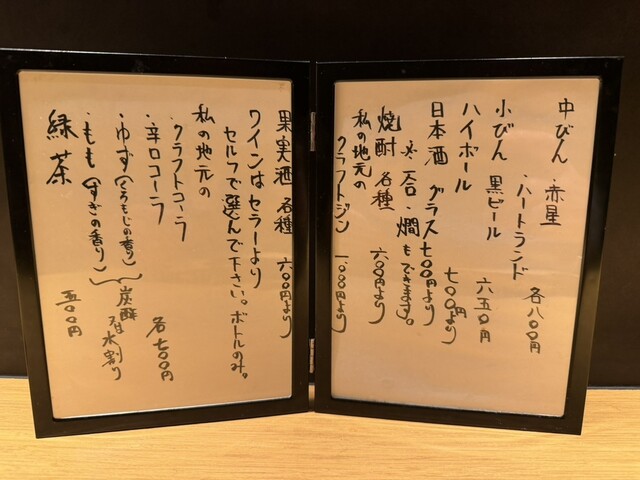 中びん・赤星
・ハートランド 各八〇〇円
小びん 黒ビール 六五〇円
ハイボール 七〇〇円より
日本酒 グラス七〇〇円より
燗もできます。
焼酎 各種 六〇〇円より
私の地元の
クラフトジン 一、〇〇〇円より
果実酒 各種 六〇〇円より
ワインはセラーより
セルフで選んで下さい。ボトルのみ。
私の地元の
・クラフトコーラ
・辛口コーラ 各七〇〇円
・ゆず(くろもじの香り)
・もも(すぎの香り) 炭酸 水割り
緑茶 五〇〇円